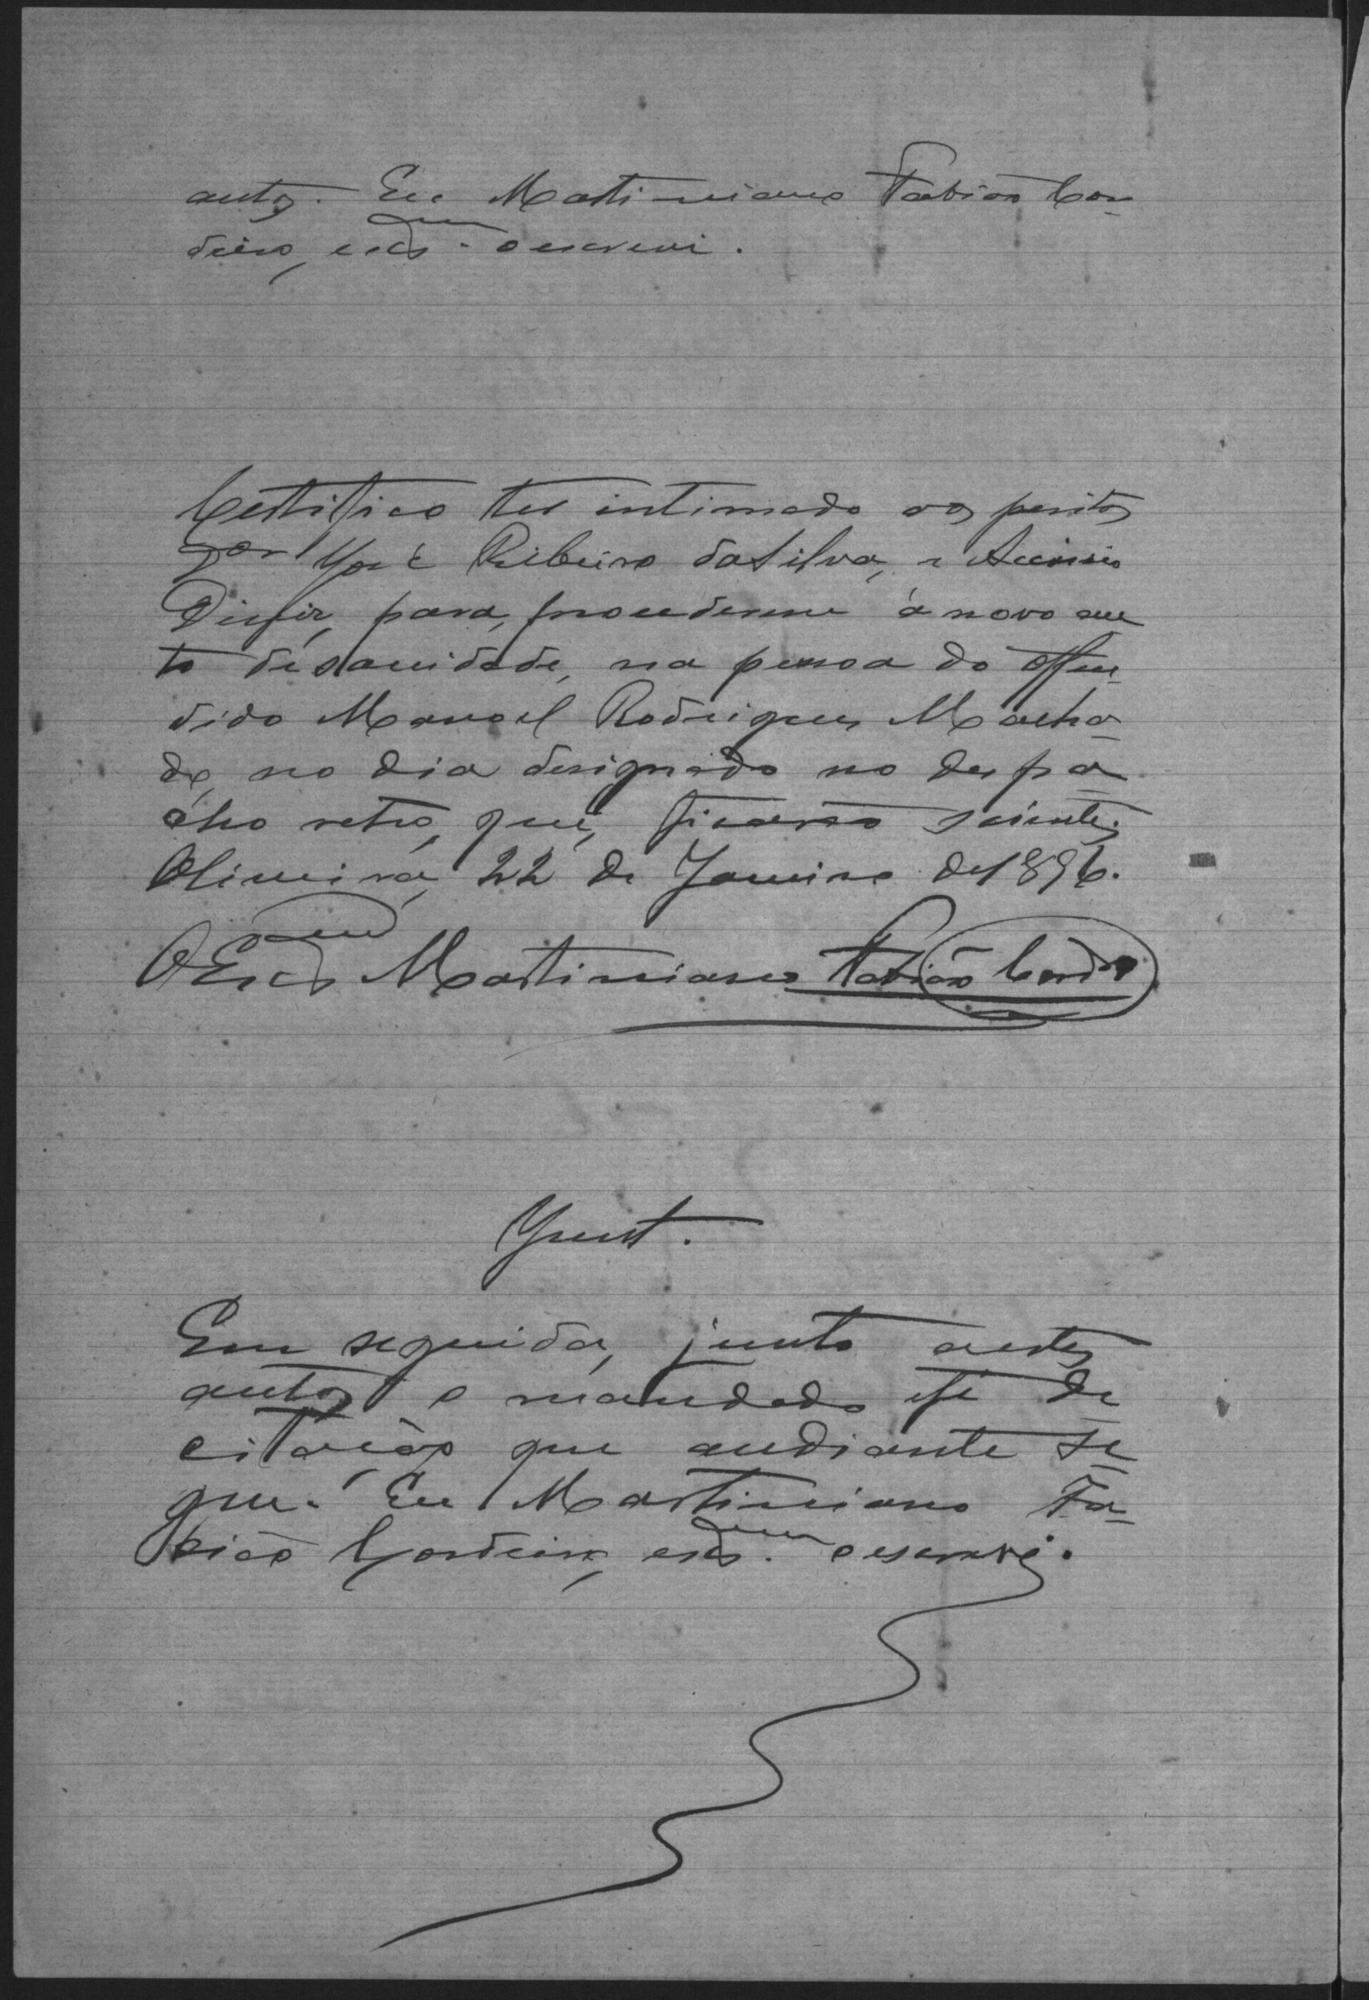 autos. Eu Martiniano Fabião Cor-
deiro, escm. o escrevi.
Certifico ter intimado aos peritos
José Ribeiro da Silva, e
para, procederem á novo au
to de sanidade, na pessoa do offen-
dido Manoel Rodrigues Macha-
do, no dia designado no despa-
cho retro, que, ficarão scientes.
Oliveira, 22 de Janeiro de 1896.
O Escm. Martiniano Fabião Cordro
Junt.
Em seguida, junto a estes
autos o mandado e fé de
citação que audiante se
gue. Eu Martiniano Fa-
bião Cordeiro, escm. o escrevi.